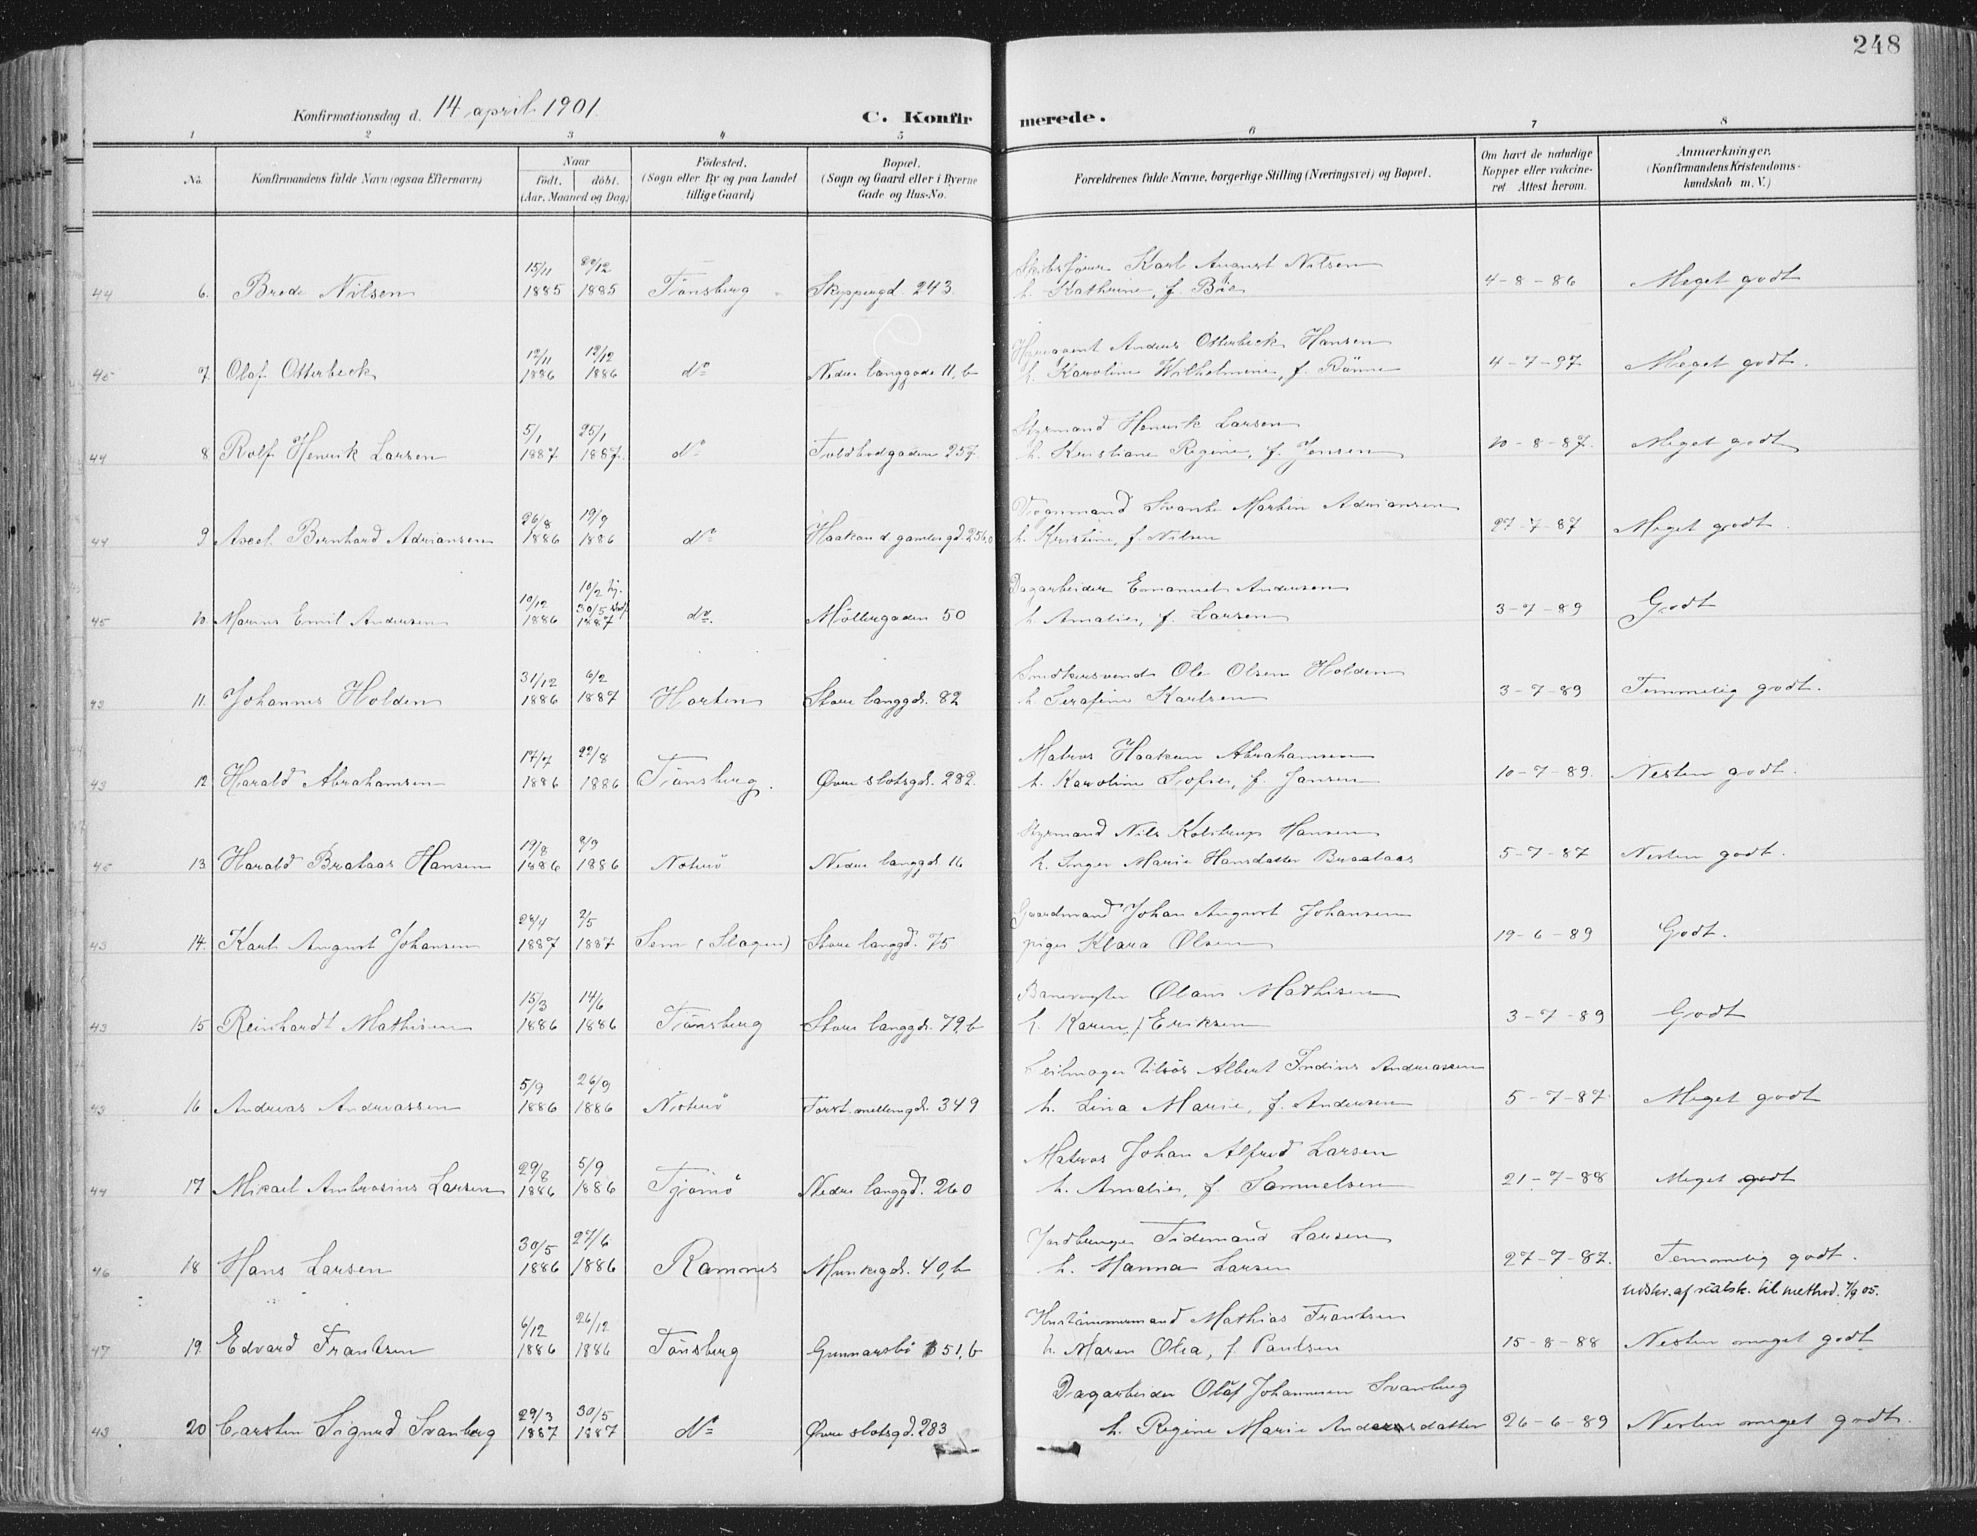 248
Konfirmationsdag d. 14 april 1901.
C. Konfirmerede.
1 2 3 4 5 6 7 8
No. Konfirmandens fulde Navn (ogsaa Efternavn) Naar födt. döbt. (Aar, Maaned og Dag) Födested. (Sogn eller By og paa Landet tillige Gaard) Bopæl. (Sogn og Gaard eller i Byerne Gade og Hus-No. Forældrenes fulde Navne, borgerlige Stilling (Næringsvei) og Bopæl. Om havt de naturlige Kopper eller vakcineret. Attest herom. Anmærkninger. (Konfirmandens Kristendomskundskab m. V.)
15/11 20/12 Skibsfører Karl August Nilsen
44 6. Brede Nilsen 1885 1885 Tönsberg Skippergd 243. h. Kathrine, f. Böe 4-8-86 Meget godt
12/11 12/12 Andreas Otterbeck Hansen
45 7. Olaf Otterbeck 1886 1886 do Nedre langgade 11, b h. Karoline Wilhelmine, f. Rönne 4-7-97 Meget godt.
5/1 25/1 Styrmand Henrik Larsen
44 8 Rolf Henrik Larsen 1887 1887. do Toldbodgaden 257. h. Kristiane Regine, f. Jensen 10-8-87. Meget godt
26/8 19/9 Vognmand Svante Martin Adriansen
44 9 Axel Bernhard Adriansen 1886 1886 do Haakon d gamles gd. 256, h. Kristine, f. Nilsen 27-7-87 Meget godt.
10/12 10/2 hj. 30/5 Dagarbeider Emanuel Andersen
45 10. Marius Emil Andersen 1886 1887 do. Möllergaden 50 h. Amalie, f. Larsen 3-7-89 Godt
31/12 6/2 Smedkersvend Ole Olsen Holden
43 11. Johannes Holden 1886 1887 Horten Store langgd. 82 h. Serafine Karlsen 3-7-89 Temmelig godt.
17/7 22/8 Matros Haakon Abrahamsen
43 12 Harald Abrahamsen 1886 1886 Tönsberg. Øvre slotsgd. 282. h. Karoline Sofie, f. Jansen 10-7-89. Nesten godt.
19/8 9/9 Styrmand Nils Kolstrup Hansen
45 13. Harald Brataas Hansen 1886 1886 Nöterö Nedre langgd. 16 h. Inger Marie Hansdatter Braataas 5-7-87 Nesten godt.
24/4 2/5 Gaardmand Johan August Johansen
43 14. Karl August Johansen 1887 1887 Sem (Slagen) Store langgd. 75 pige Klara Olsen 19-6-89 Godt.
15/3 14/6 Banevogter Olaus Mathisen
43 15 Reinhardt Mathisen 1886 1886 Tönsberg Store langgd. 79, b h. Karen f Eriksen 3-7-89 Godt
5/9 26/9 Seilmager tilsös Albert Indius Andreassen
43 16 Andreas Andreassen 1886 1886 Nöterö Farmannsgd. 349 h. Lina Marie, f. Andersen 5-7-87. Meget godt
29/8 5/9 Matros Johan Alfred Larsen
44 17 Mikael Ambrosius Larsen 1886 1886 Tjömö Nedre langgd. 260 h. Amalie, f. Samuelsen 21-7-88 Meget godt
30/5 27/6 Jordbruger Tidemand Larsen
46 18 Hans Larsen 1886 1886 Ramnes Munkegd. 40, b h. Hanna Larsen 27-7-87. Temmelig godt.
udskr. af statsk. til method. 7/9 05.
6/12 26/12 Hustömmermand Mathias Frantsen
47 19. Edvard Frantsen 1886 1886 Tönsberg Gunnarsbö 51, b h. Maren Olea, f. Paulsen 15-8-88 Nesten meget godt
29/3 30/5 Dagarbeider Olaf Johannesen Svanberg
43 20 Carsten Sigurd Svanberg 1887 1887 do Øvre slotsgd. 283 h. Regine Marie Andersdatter 26-6-89 Nesten meget godt.